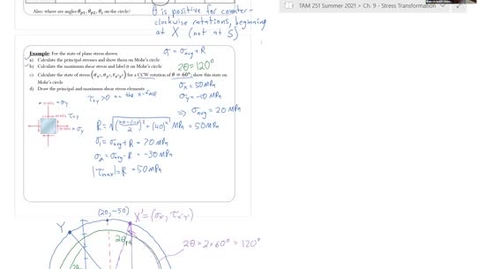 Also: where are angles θp1, θp2, θs on the circle?
θ is positive for counter-
clockwise rotations, beginning
at X (not at S)
TAM 251 Summer 2021 > Ch. 9 - Stress Transformation
Example: For the state of plane stress shown
a) Calculate the principal stresses and show them on Mohr's circle
b) Calculate the maximum shear stress and label it on Mohr's circle
c) Calculate the state of stress (σx', σy', τx'y') for a CCW rotation of θ = 60°; show this state on
Mohr's circle
d) Draw the principal and maximum shear stress elements
σ1 = σavg + R
2θ = 120°
σx = 50 MPa
σy = -10 MPa
⇒ σavg = 20 MPa
τxy > 0 on the
R = √ + (40)² MPa = 50 MPa
σ1 = σavg + R = 70 MPa
σ2 = σavg - R = -30 MPa
|τmax| = R = 50 MPa
(20, -50)
X' = (σx', τx'y')
Y
2θ = 2 × 60° = 120°